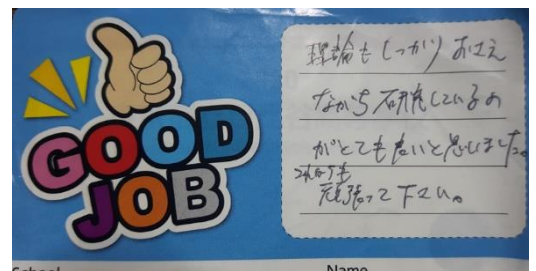 GOOD
JOB
理論もしっかりおさえ
ながら研究しているの
がとても良いと思いました。
これからも
頑張って下さい。
School
Name